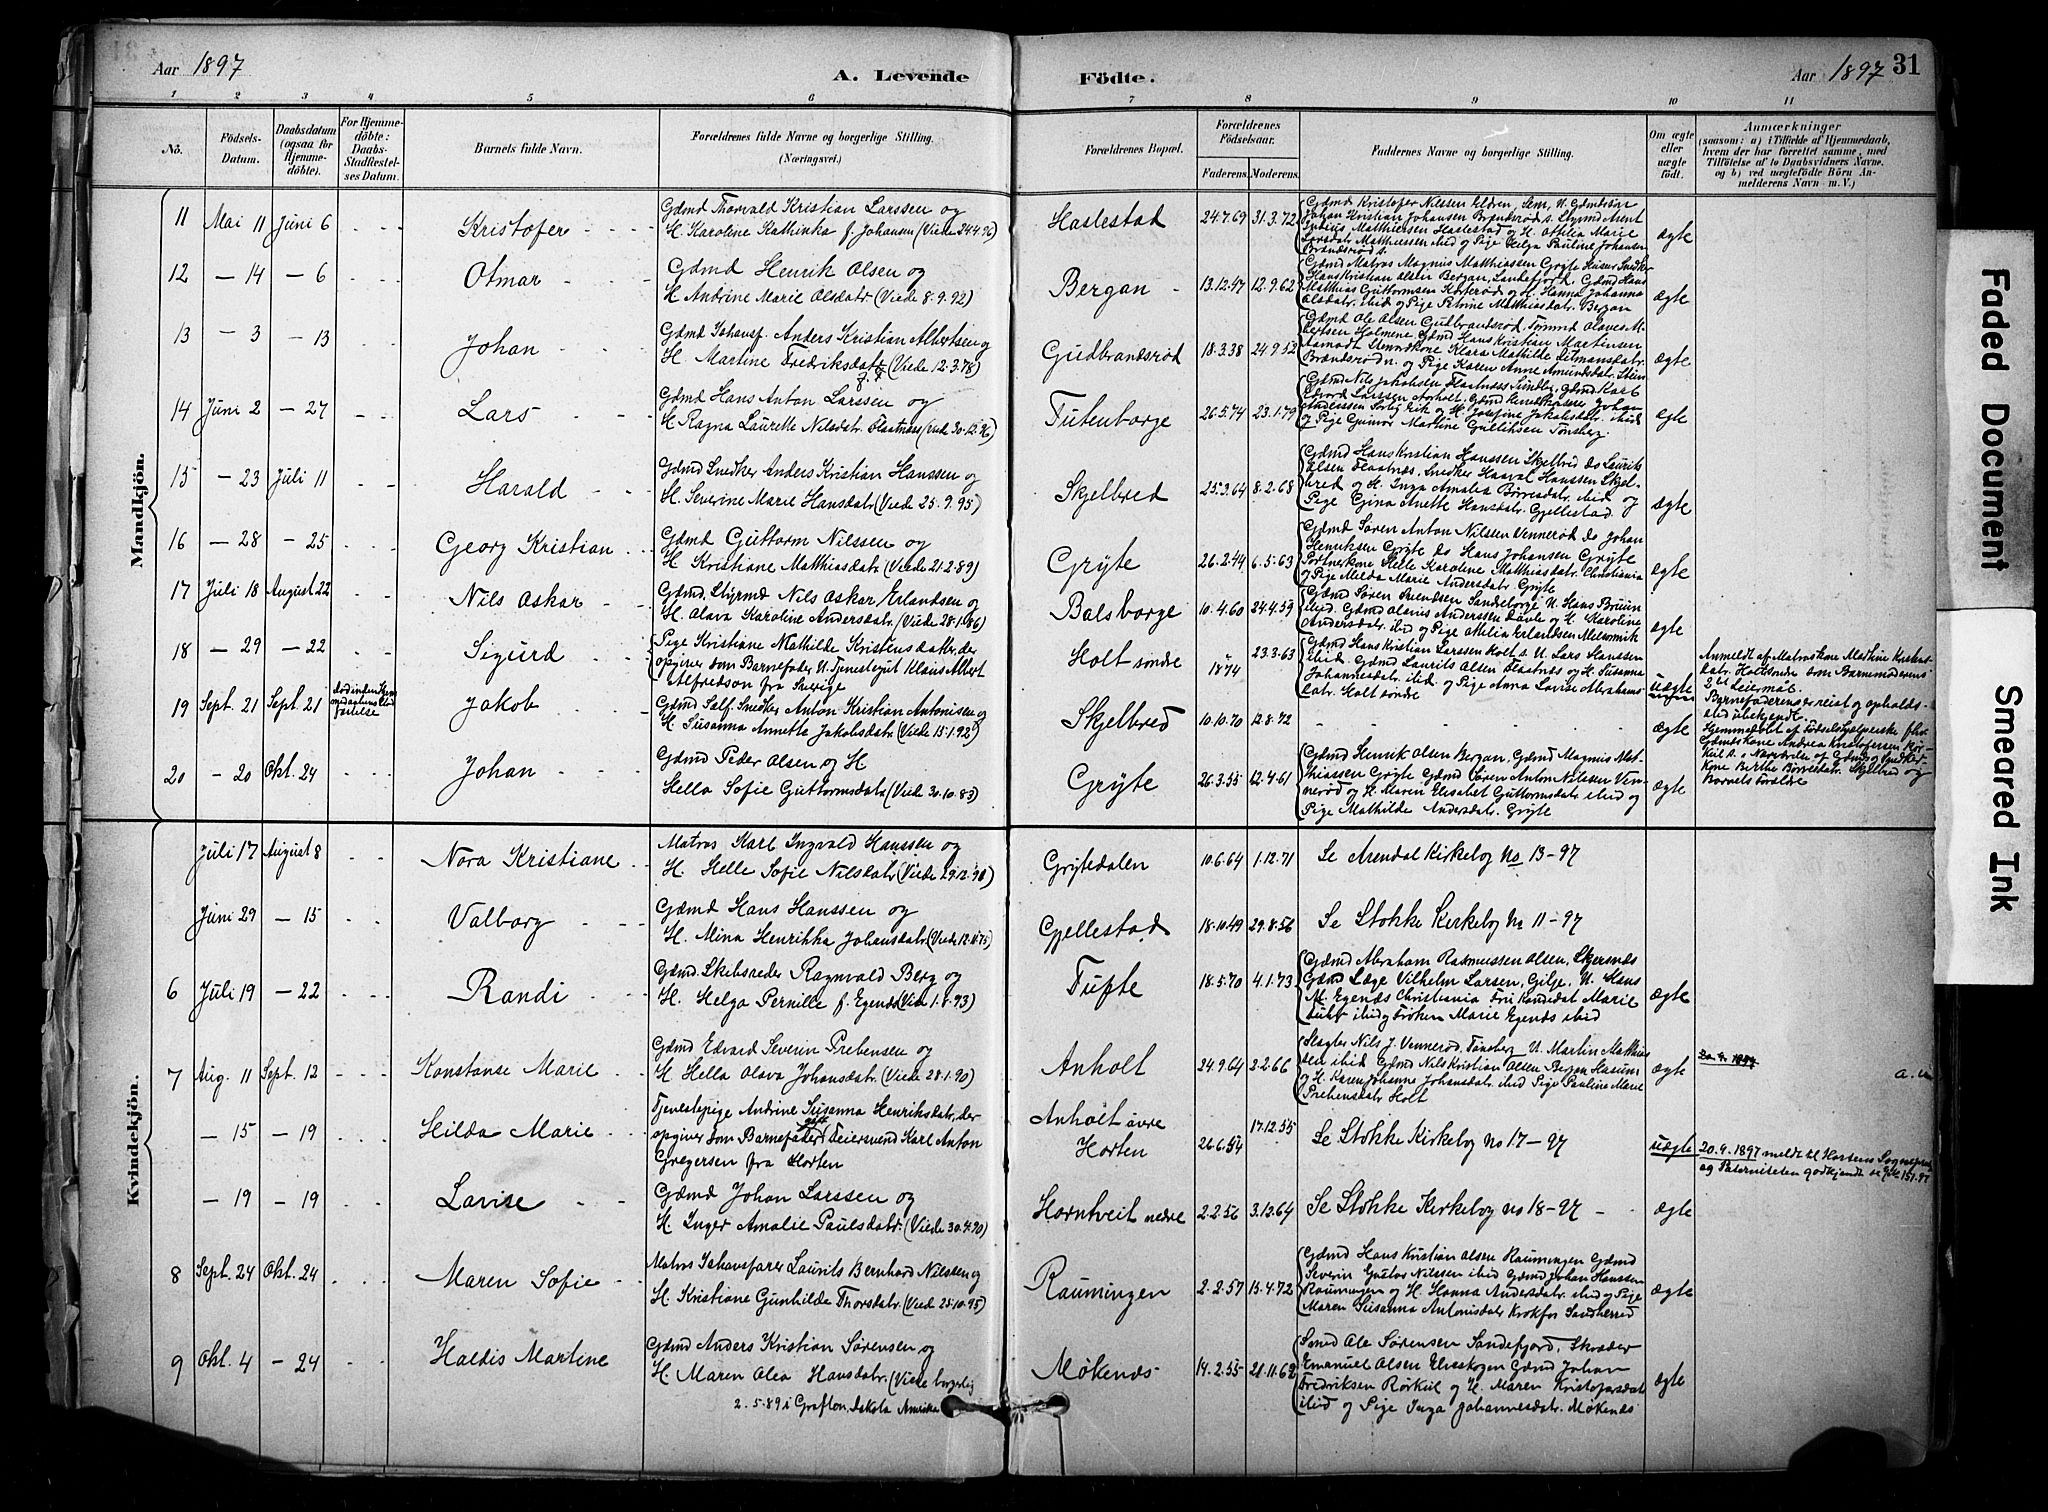 Aar 1897
A. Levende Födte.
Aar 1897
31
1 2 3 4 5 6 7 8 9 10 11
No.
Födsels-Datum.
Daabsdatum (ogsaa for Hjemme-döbte).
For Hjemme-döbte: Daabs-Stadfæstel-ses Datum.
Barnets fulde Navn.
Forældrenes fulde Navne og borgerlige Stilling. (Næringsvei.)
Forældrenes Bopæl.
Forældrenes Födselsaar.
Faderens. Moderens.
Faddernes Navne og borgerlige Stilling.
Om ægte eller uægte födt.
Anmærkninger
(saasom: a) i Tilfælde af Hjemmedaab, hvem der har forrettet samme, med Tilföielse af to Daabsvidners Navne, og b) ved uægtefödte Börn An-melderens Navn m. V.)
Mandkjön.
11 Mai 11 Juni 6 Kristofer
Gdmd Thorvald Kristian Larssen og
H. Karoline Kathinka f. Johansen (Viede 24.4.96)
Haslestad 24.7.69 31.3.72
Gdmd Kristofer Nilsen Elden, Sem, U. Gdmdsön
Johan Kristian Johansen Brændsrød s. Styrmd Arent
Matthiessen Haslestad og H. Othilia Marie
Larsdatr Matthiessen ibid og Pige Helga Pauline Johansen
Brændsrød s.
ægte
12 – 14 – 6 Otmar
Gdmd Henrik Olsen og
H Andrine Marie Olsdatr (Viede 8.9.92)
Bergan 13.12.47 12.9.62
Gdmd Matros Magnus Matthiassen Gryte Husm Snedker
Hans Kristian Olsen Bergan, Sandefjord, Gdmd Hans
Matthias Guttormsen Kosterød og H. Hanna Johanna
Olsdatr. ibid og Pige Petrine Matthiasdatr. Bergan
ægte
13 – 3 – 13 Johan
Gdmd Ishavsf. Anders Kristian Albertsen og
H. Martine Fredriksdatr (Viede 12.3.78)
Gudbrandsrød 18.3.38 24.9.52
Gdmd Ole Olsen Gudbrandsrød, Tømmd Olaves M.
Holmene Gdmd Hans Kristian Martinsen
Aamodt Klara Mathilde Ditmansdatr.
Brændsrød n. og Pige Karen Anne Amundsdatr. Stein
ægte
14 Juni 2 – 27 Lars
Gdmd Hans Anton Larssen og
H Ragna Laurette Nilsdatr. Flaatnæs (viede 30.12.96)
Tutenborge 26.5.74 23.1.79
Gdmd Nils Jakobsen Flaatnæs Sundby, Gdmd Karl
Edvard Larssen Anholt, Gdmd Johan
Anderssen Solvig Eik og H. Josefine Jakobsdatr. ibid
og Pige Gunvor Martine Gulliksen Tønsberg.
ægte
15 – 23 Juli 11 Harald
Gdmd Snedker Anders Kristian Hanssen og
H. Severine Marie Hansdatr (Viede 25.9.95)
Skjelbred 25.3.64 8.2.68
Gdmd Hans Kristian Hanssen Skjelbred do Laurik
Olsen Flaatnæs. Snedker Haaval Hanssen Skjel-
bred og H. Inga Amalia Børresdatr. ibid og
Pige Gina Anette Hansdatr. Gjellestad.
ægte
16 – 28 – 25 Georg Kristian
Gdmd Guttorm Nilssen og
H Kristiane Matthiasdatr. (Viede 21.2.89)
Gryte 26.2.44 6.5.63
Gdmd Søren Anton Nilssen Vennerød do Johan
Henriksen Gryte do Hans Johansen Gryte
Portnerkone Helle Karoline Matthiasdatr. Christiania
og Pige Merda Marie Andersdatr Gryte
ægte
17 Juli 18 August 22 Nils Oskar
Gdmd. Styrmd Nils Oskar Erlandsen og
H. Olava Karoline Andersdatr. (Viede 28.1.86)
Balsborge 10.4.60 24.4.59
Gdmd Søren Svendsen Sandeborge U. Hans Bruun
ibid. Gdmd Olavus Anderssen Låvle og H. Karoline
Andersdatr. ibid og Pige Othilia Erlandsen Melsomvik
ægte
18 – 29 – 22 Sigurd
Pige Kristiane Mathilde Kristensdatter, der
opgiver som Barnefader U. Tjenestegut Klaus Albert
Alfredson fra Sverige
Holt søndre 1874 23.3.63
Gdmd Hans Kristian Larssen Holt s. U. Lars Hanssen
ibid. Gdmd Laurits Olsen Flaatnæs og H. Susanna
Johannesdatr. ibid og Pige Anna Lovise Abrahams-
datr. Holt søndre
uægte
Anmeldt af Matroskone Mathine Kristens-
datr. Holt søndre som Barnemoderens
3die Leiermaal.
Barnefaderens er reist og opholds-
sted ubekjendt.
19 Sept. 21 Sept. 21 Jakob
Gdmd Self. Snedker Anton Kristian Antonisen og
H. Susanna Annette Jakobsdatr. (Viede 15.1.92)
Skjelbred 10.10.70 12.8.72
ægte
Hjemmedøbt af Fødselshjælperske
Gdmdskone Andrea Kristofersen Rør-
kul s. i Nærværelse af Gdmds og Snedker-
kone Berthe Børresdatr. Skjelbred og
Barnets Forældre
20 – 20 Okt. 24 Johan
Gdmd Peder Olsen og H
Hella Sofie Guttormsdatr (Viede 30.10.83)
Gryte 26.3.55 12.4.61
Gdmd Henrik Olsen Bergan, Gdmd Magnus Mat-
thiassen Gryte Gdmd Søren Anton Nilssen Ven-
nerød og H. Maren Elisabet Guttormsdatr ibid og
Pige Mathilde Andersdatr. Gryte
ægte
Kvindekjön.
Juli 17 August 8 Nora Kristiane
Matros Karl Ingvald Hanssen og
H. Helle Sofie Nilsdatr (Viede 29.12.90)
Grytedalen 10.6.64 1.12.71 Se Arendal Kirkebog No 13-97
Juni 29 – 15 Valborg
Gdmd Hans Hanssen og
H. Mina Henrikka Johansdatr. (Viede 12.11.75)
Gjellestad 18.10.49 29.8.56 Se Stokke Kirkebog No 11-97
6 Juli 19 – 22 Randi
Gdmd. Skibsreder Ragnvald Berg og
H. Helga Pernille f. Egenæs (Viede 1.8.93)
Tufte 18.5.70 4.1.73
Gdmd Abraham Rasmussen Olsen, Skjernæs
Gdmd Læge Vilhelm Larsen, Gilje. U. Hans
M. Egenæs Christiania Fru Kandidat Marie
ibid og Frøken Marie Egenæs ibid
ægte
7 Aug. 11 Sept. 12 Konstanse Marie
Gdmd Edvard Severin Prebensen og
H. Hella Olava Johansdatr. (Viede 28.1.90)
Anholt 24.9.64 2.2.66
Slagter Nils J. Vennerød. Tønsberg U. Martin Matthias-
sen ibid Gdmd Nils Kristian Olsen Bergan Hasum
og H. Karen Johanne Johansdatr. ibid Pige Pauline Marie
Prebensdatr Holt
ægte
20.9.1897
– 15 – 19 Hilda Marie
Tjenestepige Andrine Susanna Henriksdatr, der
opgiver som Barnefader gift Feiersvend Karl Anton
Gregersen fra Horten
Anholt øvre
Horten 26.6.54 17.12.55 Se Stokke Kirkebog No 17-97
uægte
20.9.1897 meldt til Hortens Sognepræst
og Paterniteten godkjendt
– 19 – 19 Lovise
Gdmd Johan Larssen og
H. Inger Amalie Paulsdatr. (Viede 30.4.90)
Horntveit nedre 2.2.56 3.12.64 Se Stokke Kirkebog No 18-97
ægte
8 Sept. 24 Okt. 24 Maren Sofie
Matros Ishavsfarer Laurits Bernhard Nilssen og
H. Kristiane Gunhilde Thorsdatr. (Viede 25.10.95)
Raumingen 2.2.57 15.4.72
Gdmd Hans Kristian Olsen Raumingen Gdmd
Severin Gustav Nilssen ibid Gdmd Johan Hanssen
Raumingen og H. Hanna Andersdatr. ibid og Pige
Maren Susanna Antonisdatr Krokfos Sandherred
ægte
9 Okt. 4 – 24 Haldis Martine
Gdmd Anders Kristian Sørensen og
H. Maren Olea Hansdatr. (Viede borgerlig
2.5.89 i Grafton, Dakota Amerika
Møkenæs 14.2.55 21.11.62
Smed Ole Sørensen Sandefjord. Skræder
Emanuel Olsen Elveskogen Gdmd Johan
Fredriksen Rørkul og H. Maren Kristofersdatr
ibid og Pige Inga Johannesdatr. Møkenæs
ægte
Faded Document
Smeared Ink